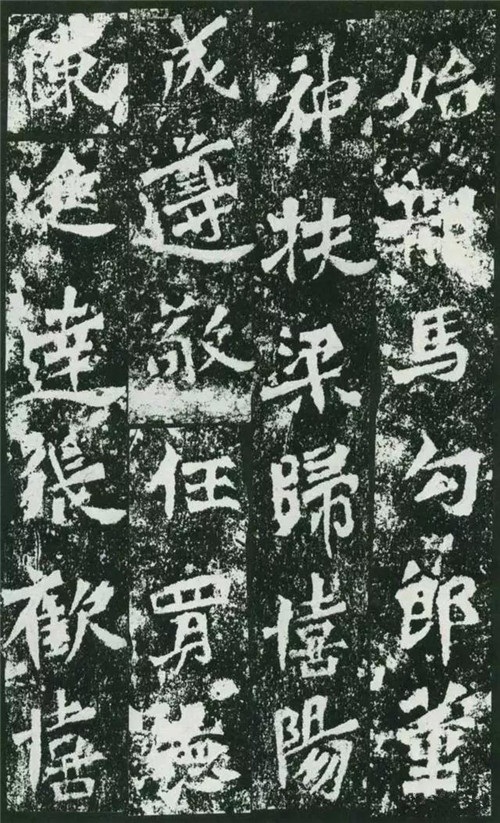 始龍馬勾郎董
神扶梁歸憘陽
成遵敬任買德
陳進達張歡憘